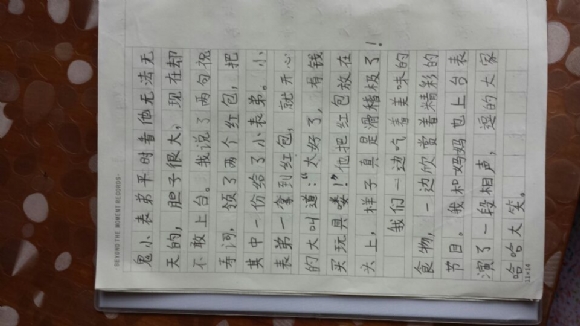 RECORD THE MOMENT
鬼小表弟平时看似无法无
天的，胆子很大，现在却
不敢上台。我说了两句祝
寿词，领了两个红包，把
其中一份给了小表弟。小
表弟一拿到红包，就开心
的大叫道：“太好了，有钱
买玩具喽！”他把红包放在
头上，样子真是滑稽极了！
我们一边吃着美味的
食物，一边欣赏着精彩的
节目。我和妈妈也上台表
演了一段相声，逗的大家
哈哈大笑。